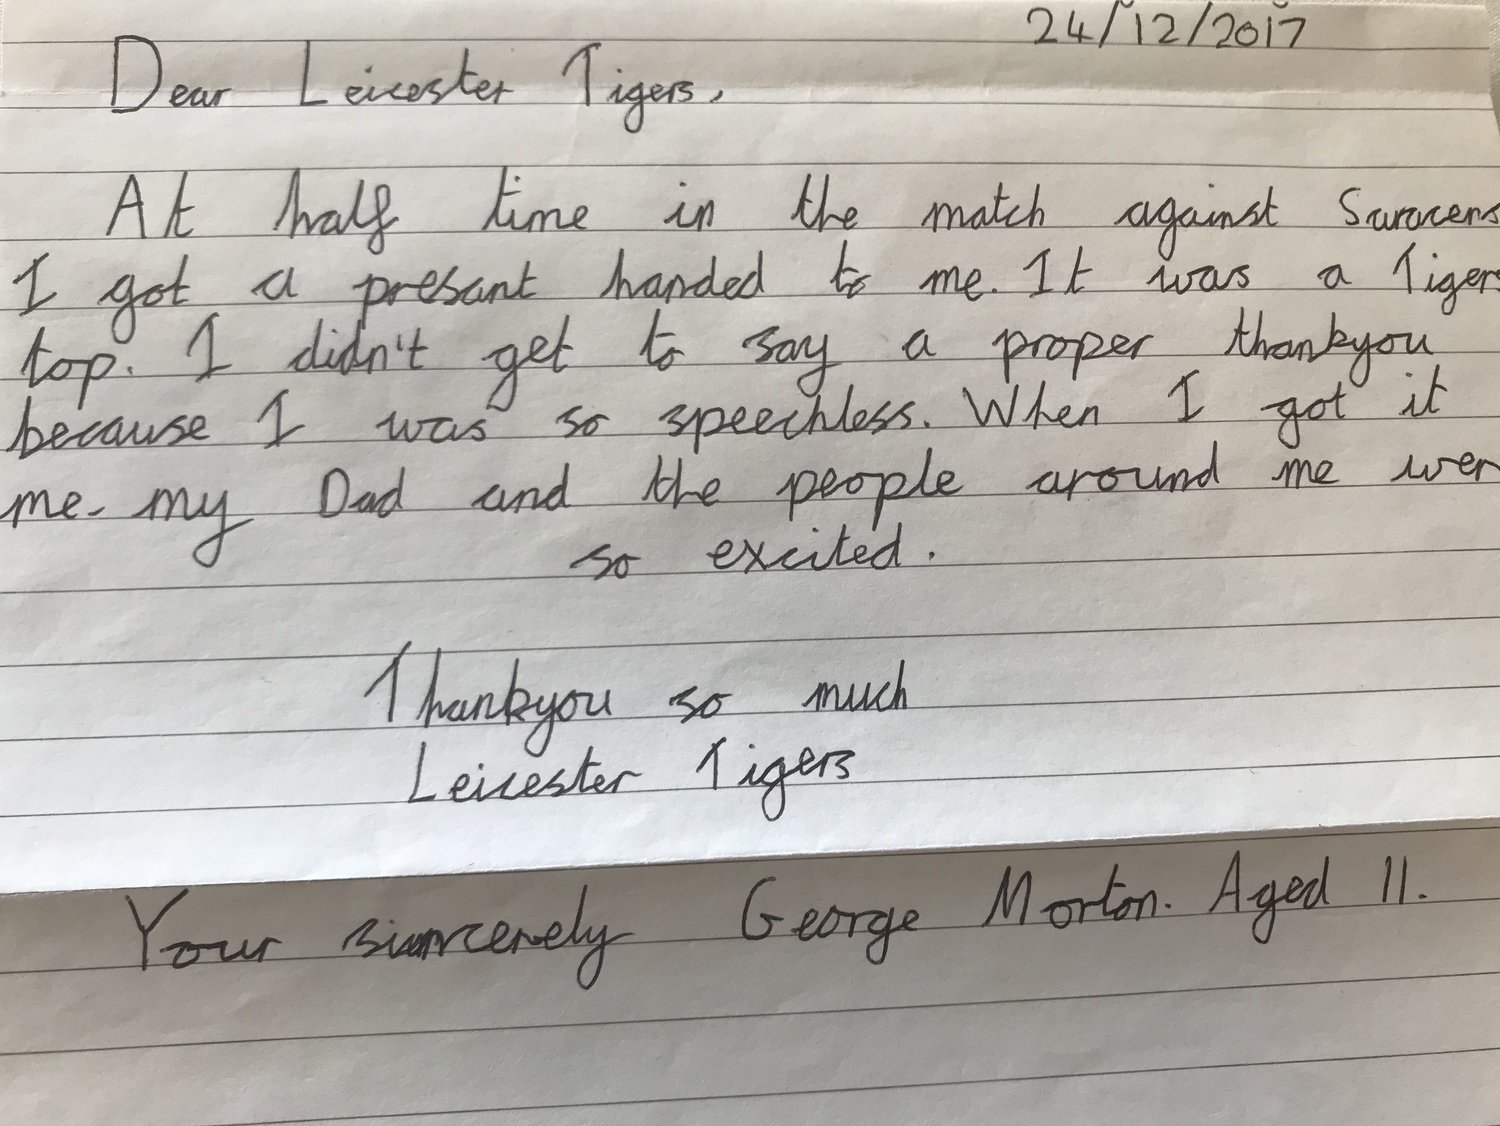 24/12/2017
Dear Leicester Tigers,
At half time in the match against Saracens
I got a presant handed to me. It was a Tigers
top. I didn't get to say a proper thankyou
because I was so speechless. When I got it
me. my Dad and the people around me wer
so excited.
Thankyou so much
Leicester Tigers
Your sincerely George Morton. Aged 11.